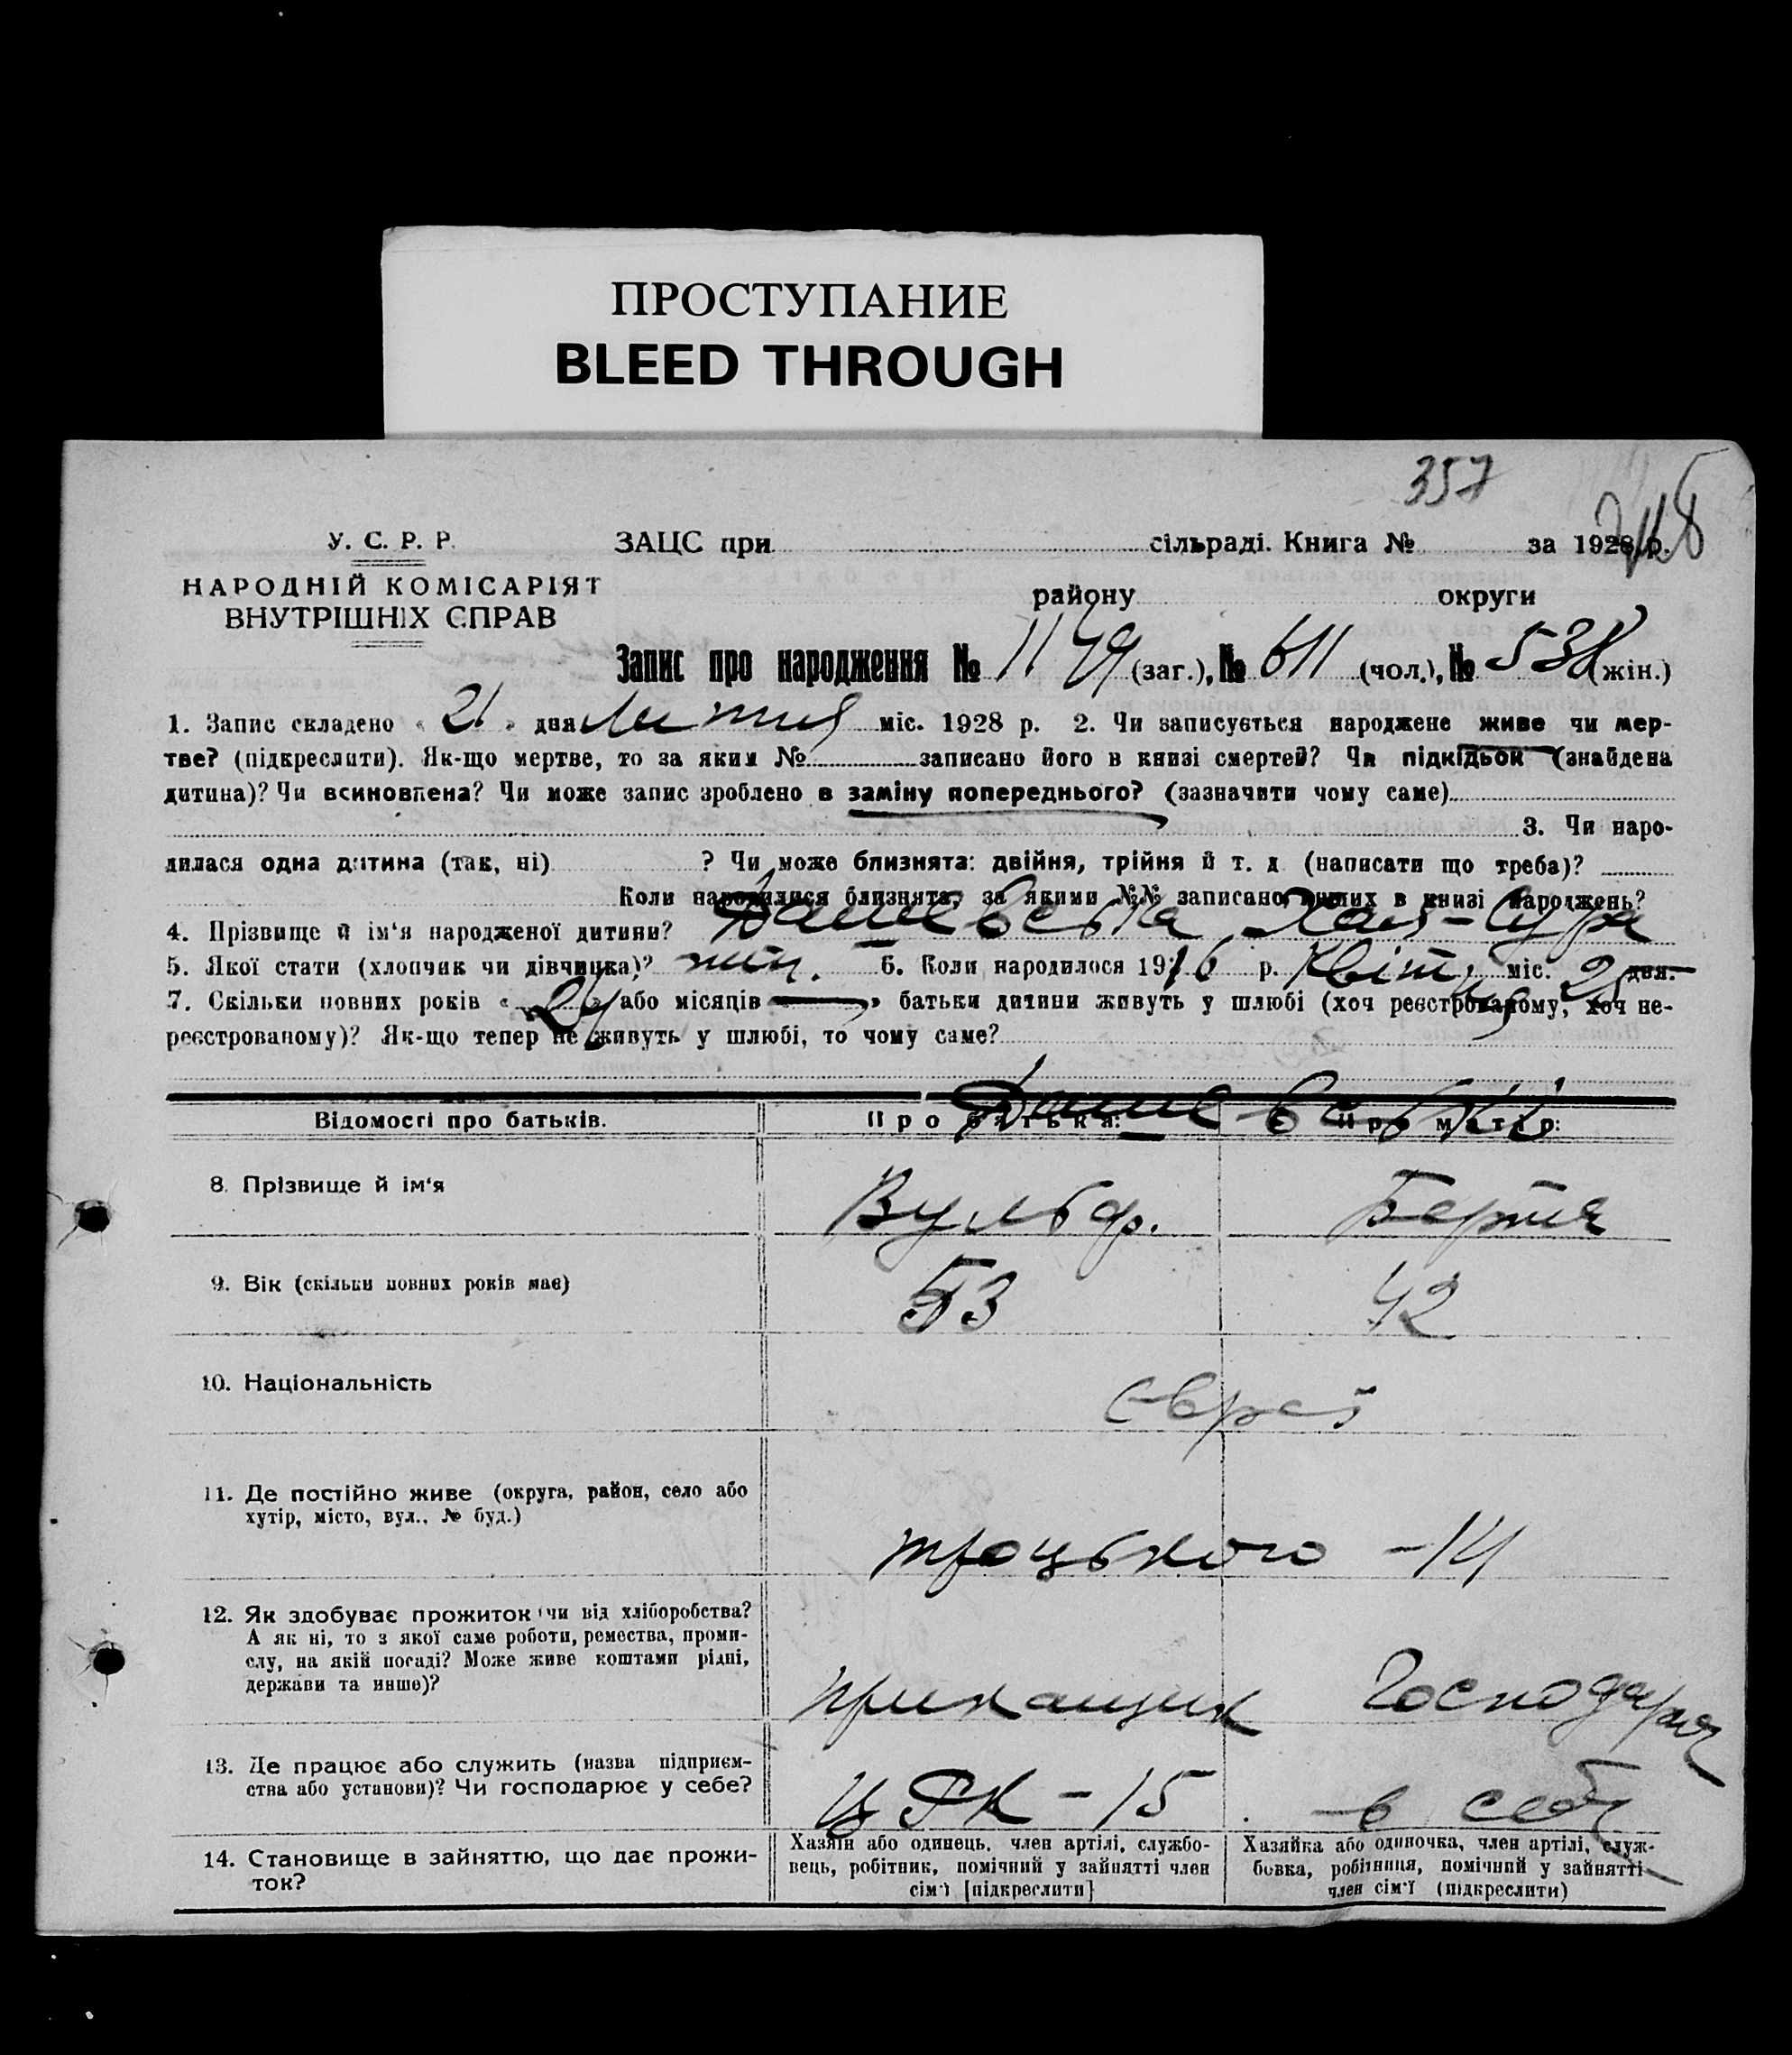 ПРОСТУПАНИЕ
BLEED THROUGH
357
У. С. Р. Р.
ЗАЦС при сільраді. Книга № за 1928 р.
НАРОДНІЙ КОМІСАРІЯТ
ВНУТРІШНІХ СПРАВ
району округи
Запис про народження № 1149 (заг.), № 611 (чол.), № 538 (жін.)
1. Запис складено « 21 » дня Липня міс. 1928 р. 2. Чи записується народжене живе чи мер-
тве? (підкреслити). Як-що мертве, то за яким № записано його в книзі смертей? Чи підкідьок (знайдена
дитина)? Чи всиновлена? Чи може запис зроблено в заміну попереднього? (зазначити чому саме)
3. Чи наро-
дилася одна дитина (так, ні) ? Чи може близнята: двійня, трійня й т. д. (написати що треба)?
Коли народилися близнята, за якими №№ записано инших в книзі народжень?
4. Прізвище й ім'я народженої дитини? Дашевська Хая-Сура
5. Якої стати (хлопчик чи дівчинка)? жін. 6. Коли народилося 1916 р. Квітня міс. 25 дня.
7. Скільки повних років « 24 » або місяців « — » батьки дитини живуть у шлюбі (хоч реєстрованому, хоч не-
реєстрованому)? Як-що тепер не живуть у шлюбі, то чому саме?
Дашевські
Відомості про батьків. Про батька: Про матір:
8. Прізвище й ім'я Вульф. Бертя
9. Вік (скільки повних років має) 53 42
10. Національність євреї
11. Де постійно живе (округа, район, село або
хутір, місто, вул., № буд.)
Троцького - 14
12. Як здобуває прожиток чи від хліборобства?
А як ні, то з якої саме роботи, ремества, проми-
слу, на якій посаді? Може живе коштами рідні,
держави та инше)?
прикащик Господаря
13. Де працює або служить (назва підприєм-
ства або установи)? Чи господарює у себе?
ЦРК - 15 в себе
14. Становище в зайняттю, що дає прожи-
ток?
Хазяїн або одинець, член артілі, службо-
вець, робітник, помічний у зайнятті член
сім'ї [підкреслити]
Хазяйка або одиночка, член артілі, служ-
бовка, робітниця, помічний у зайнятті
член сім'ї (підкреслити)